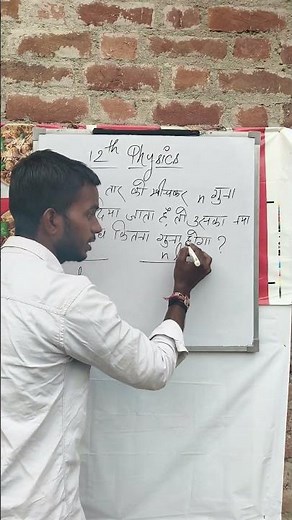 12th Physics
तार को खींचकर n गुना
जाता है, तो उसका
कितना गुना होगा ?
n